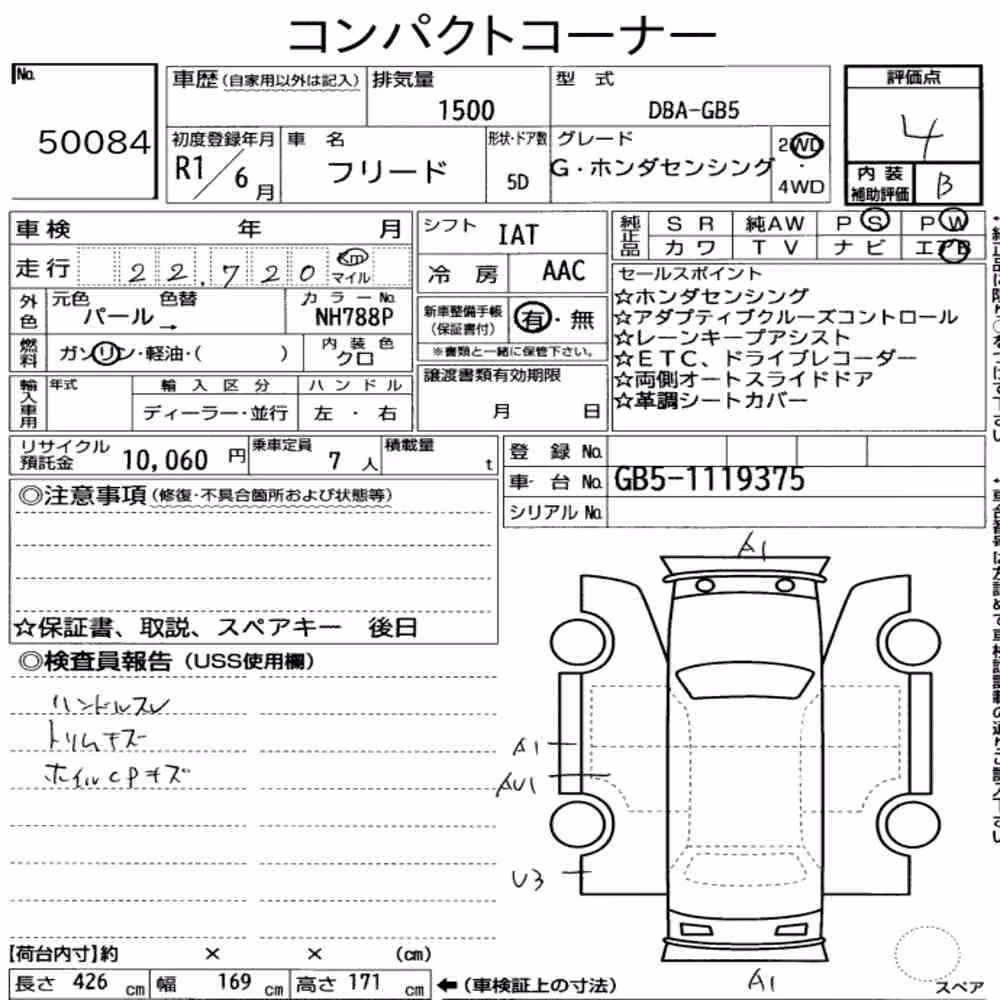 コンパクトコーナー
No.
50084
車歴(自家用以外は記入)
排気量
1500
型 式
DBA-GB5
評価点
4
初度登録年月
R1/6月
車 名
フリード
形状・ドア数
5D
グレード
G・ホンダセンシング
2WD
・
4WD
内装
補助評価
B
車検 年 月
シフト
IAT
純正品
SR 純AW PS PW
カワ TV ナビ エアB
走行 22,720 Km
マイル
冷房
AAC
セールスポイント
☆ホンダセンシング
☆アダプティブクルーズコントロール
☆レーンキープアシスト
☆ETC、ドライブレコーダー
☆両側オートスライドドア
☆革調シートカバー
外色
元色 色替
パール→
カラーNo.
NH788P
新車整備手帳
(保証書付)
有・無
※書類と一緒に保管下さい。
燃料
ガソリン・軽油・( )
内装色
クロ
譲渡書類有効期限
月 日
輸入車用
年式
輸入区分
ディーラー・並行
ハンドル
左・右
リサイクル
預託金
10,060 円
乗車定員
7 人
積載量
t
登 録 No.
車 台 No.
GB5-1119375
シリアル No.
◎注意事項(修復・不具合箇所および状態等)
☆保証書、取説、スペアキー 後日
◎検査員報告(USS使用欄)
ハンドルスレ
トリムキズ
ホイルCPキズ
A1
A1
AU1
U3
A1
スペア
【荷台内寸】約 × × (cm)
長さ 426 cm 幅 169 cm 高さ 171 cm ←(車検証上の寸法)